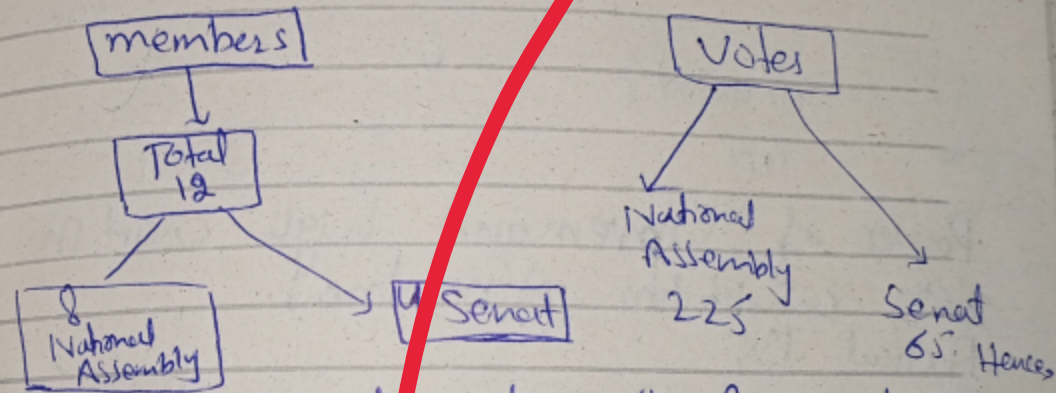 members
Total
12
8
National
Assembly
4 Senat
Votes
National
Assembly
225
Senat
65. Hence,